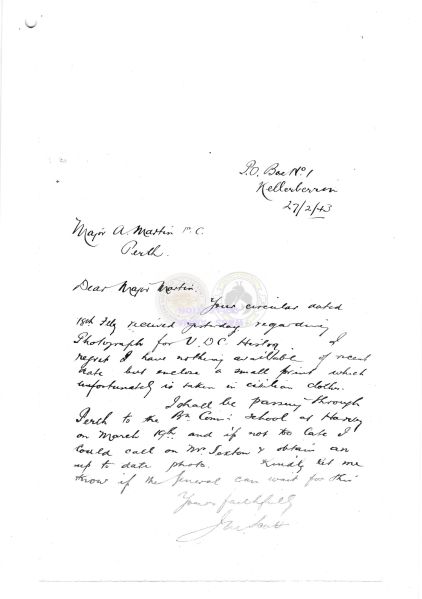 P.O. Box No. 1
Kellerberrin
27/2/43
Major A. Martin
Perth.
Dear Major Martin.
Your circular dated
18th Feby recieved yesterday regarding
Photograph for V.D.C. History. I
regret I have nothing available of recent
date but enclose a small print which
unfortunately is taken in civilian clothes.
I shall be passing through
Perth to the Bn Comm: School at Harvey
on March 19th. and if not too late I
could call on Mr Sexton & obtain an
up to date photo. Kindly let me
know if the General can wait for this
Yours faithfully